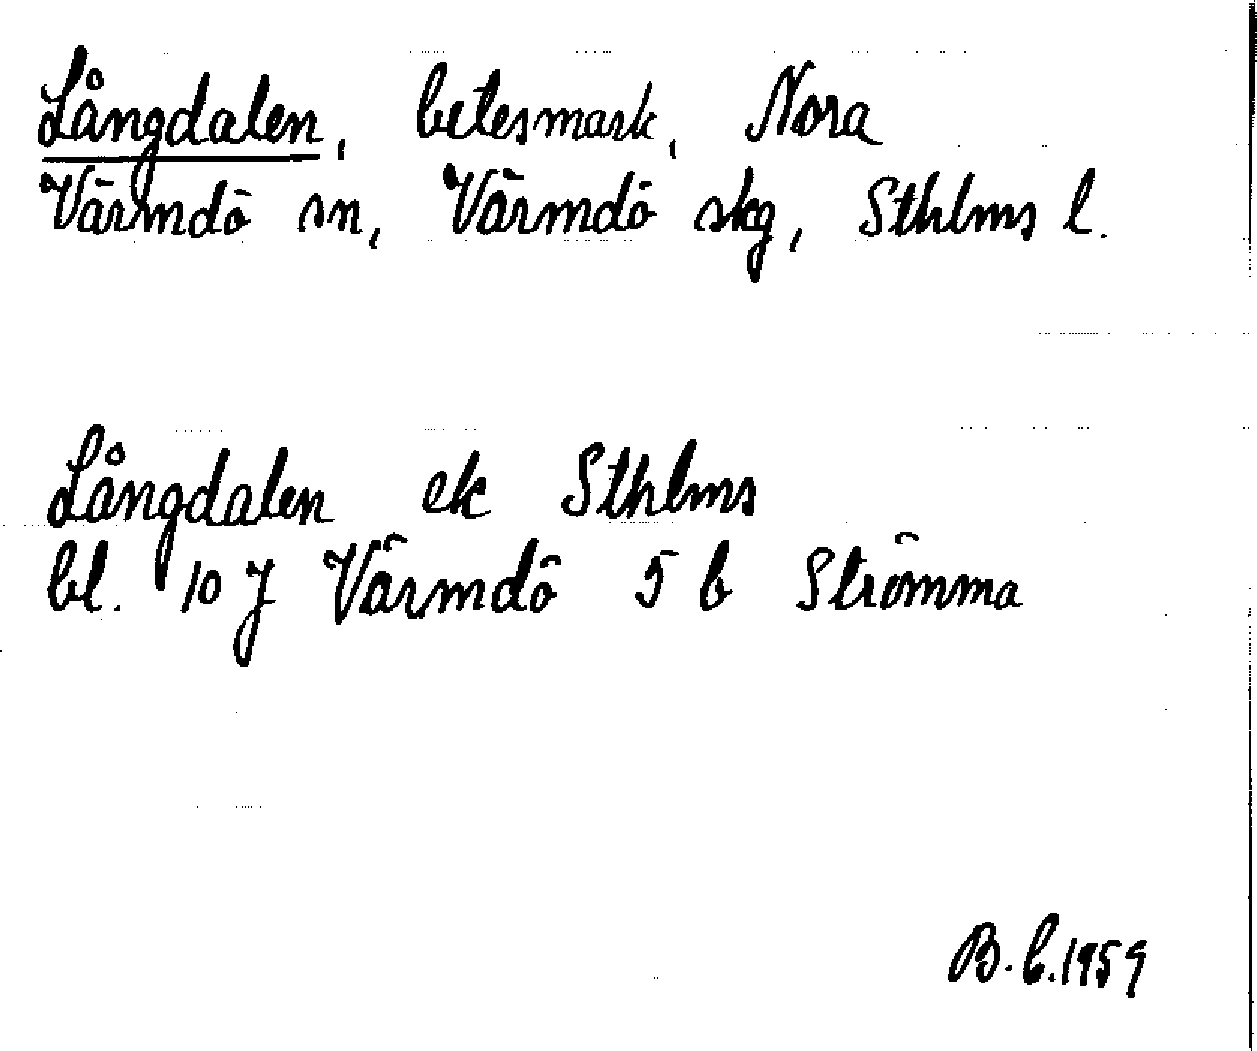 Långdalen, betesmark, Nora
Värmdö sn, Värmdö skg, Sthlms l.
Långdalen ek Sthlms
bl. 10 J Värmdö 5 b Strömma
B.b.1959